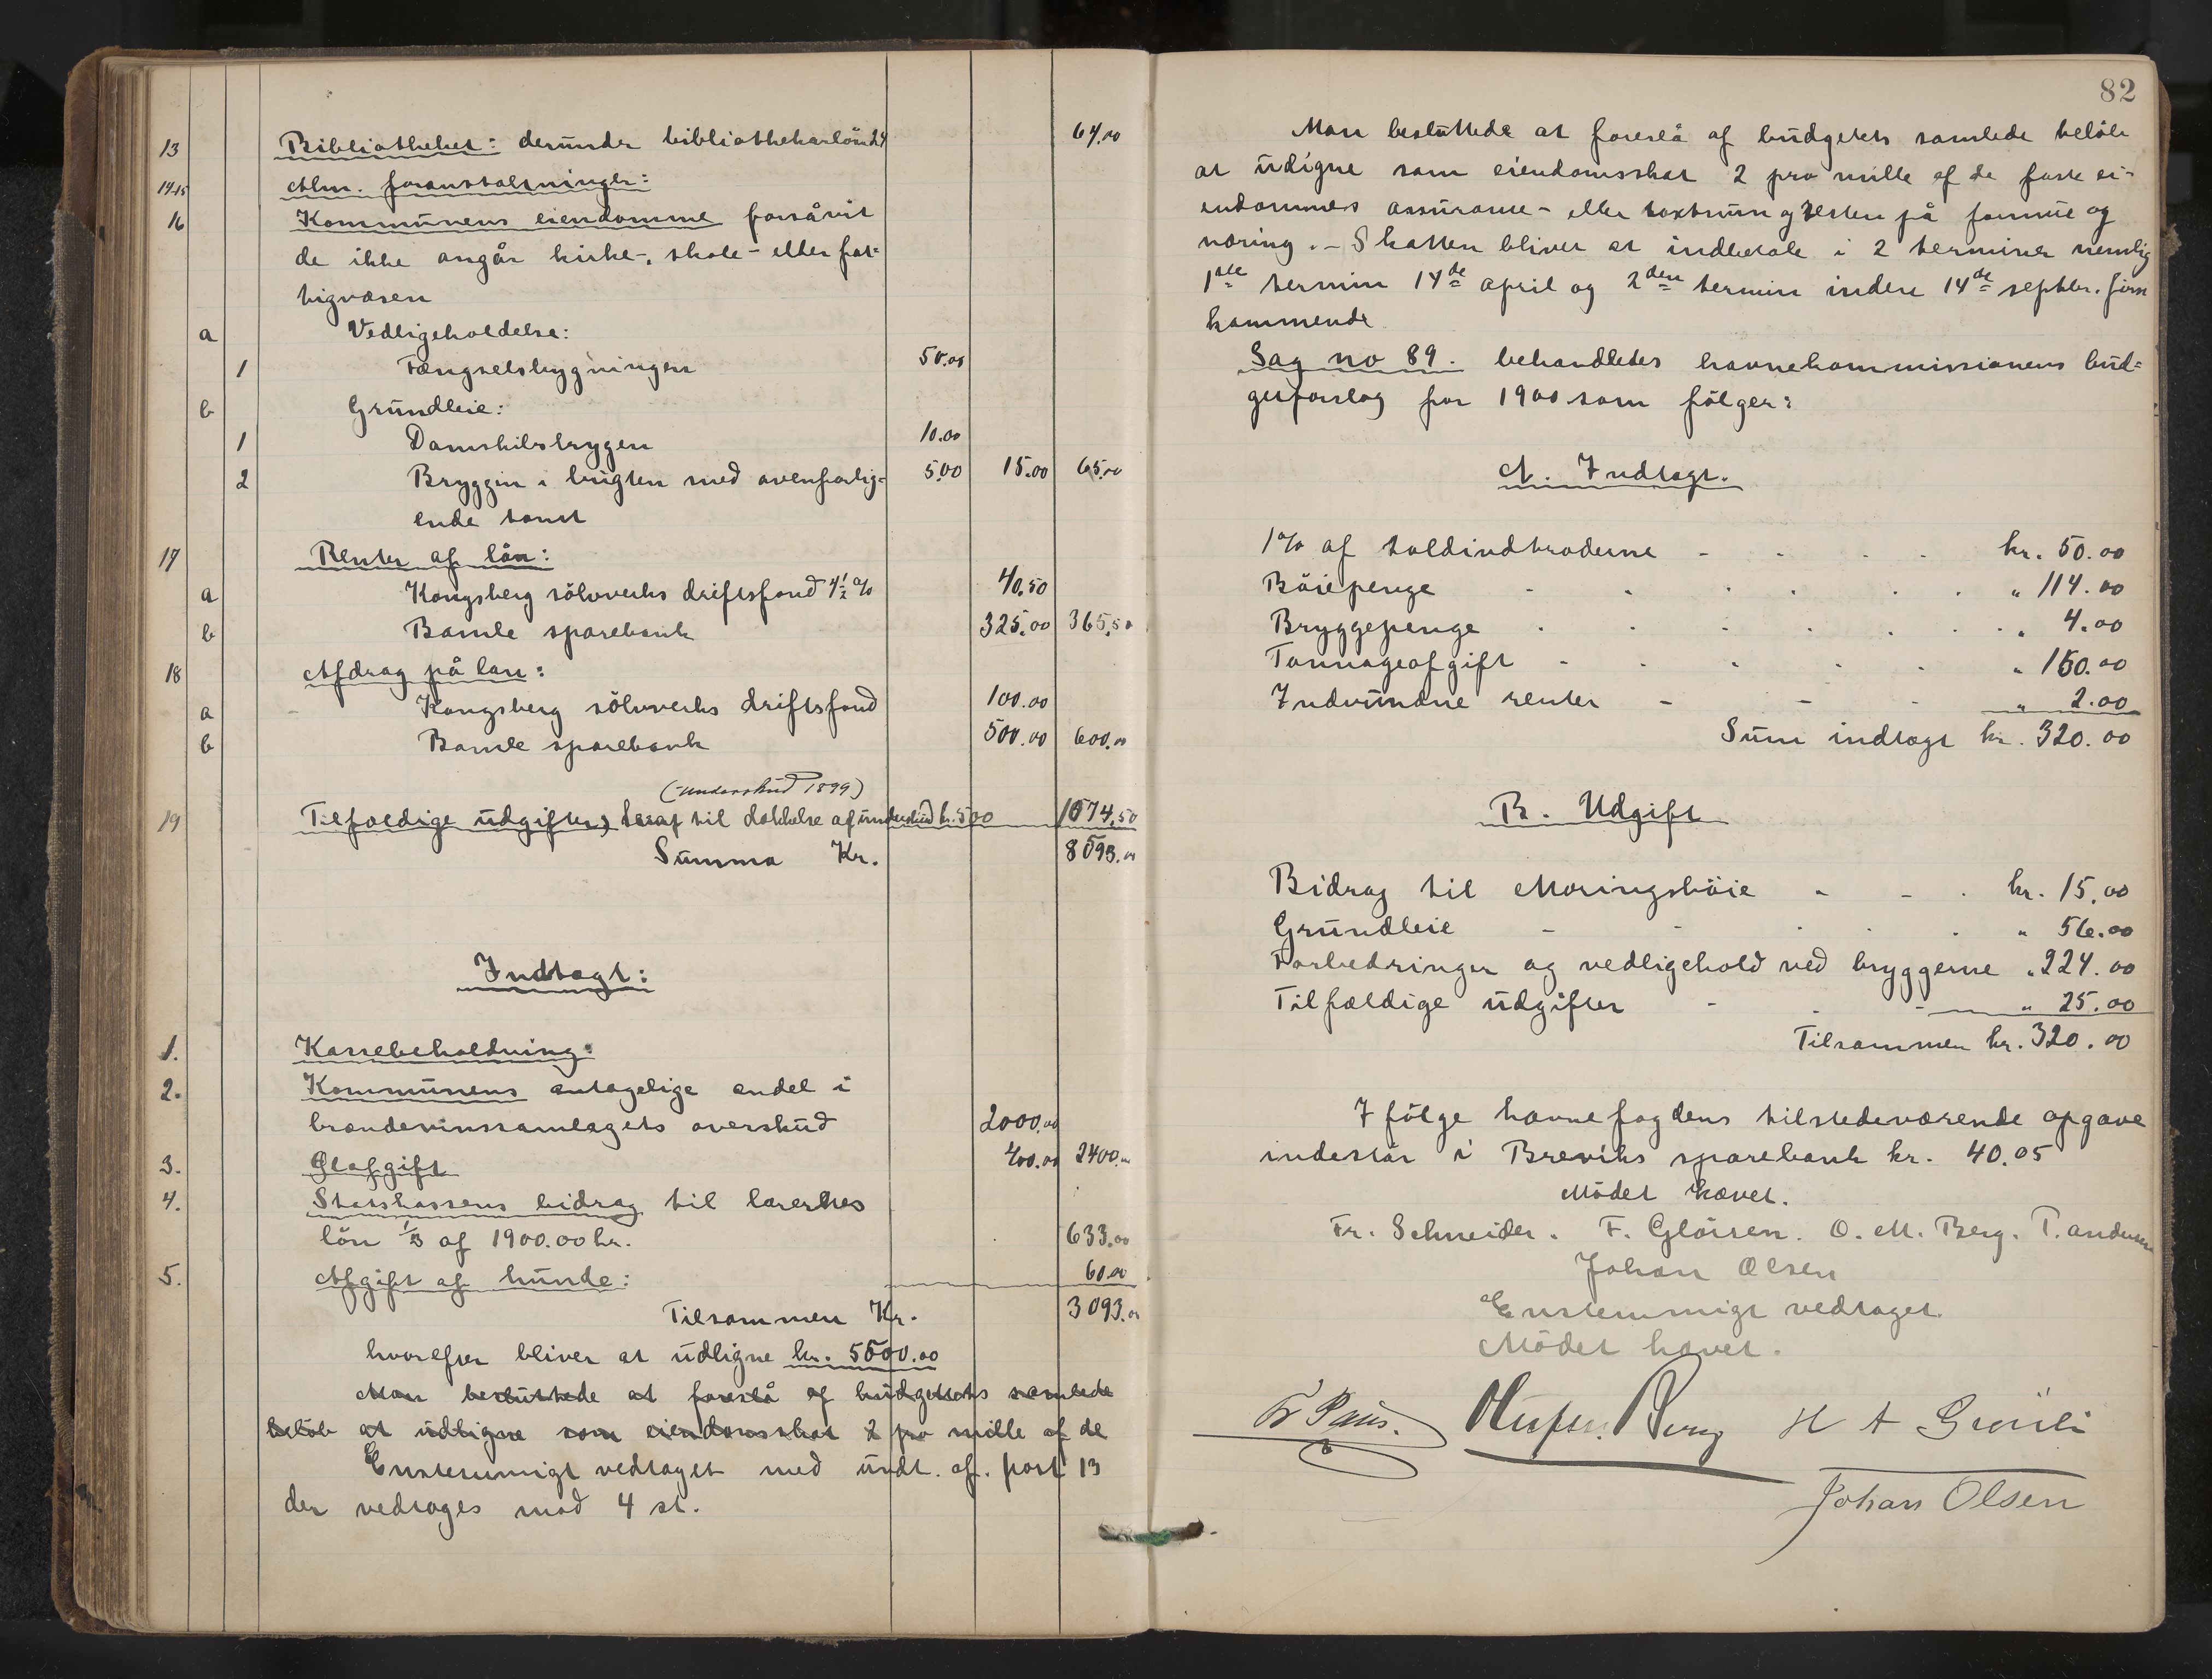 13 Bibliotheket: derunder bibliothekarlön 24 64.00
14.15 Alm. foranstaltninger:
16 Kommunens eiendomme forsåvit
de ikke angår kirke-, skole- eller fat-
tigvæsen
a Vedligeholdelse:
1 Fængselsbygningen 50.00
b Grundleie:
1 Damskibsbryggen 10.00
2 Bryggen i bugten med ovenforlig- 5.00 15.00 65.00
ende tomt
17 Renter af lån:
a Kongsberg sölvverks driftsfond 4½ % 40.50
b Bamle sparebank 325.00 365.50
18 Afdrag på lån:
a Kongsberg sölvverks driftsfond 100.00
b Bamle sparebank 500.00 600.00
(underskud 1899)
19 Tilfældige udgifter, deraf til dækkelse af underskud kr. 500 1074.50
Summa Kr. 8593.00
Indtægt:
1. Kassebeholdning:
2. Kommunens antagelige andel i
brændevinssamlagets overskud 2000.00
3. Ølafgift 400.00 2400.00
4. Statskassens bidrag til lærernes
lön 1/3 af 1900.00 kr. 633.00
5. Afgift af hunde: 60.00
Tilsammen Kr. 3093.00
hvorefter bliver at udligne kr. 5500.00
Man besluttede at foreslå af budgettets samlede
belöb at udligne som eiendomsskat 2 pro mille af de
Enstemmigt vedtaget med undt. af. post 13
der vedtages mod 4 st.
82
Man besluttede at foreslå af budgetets samlede belöb
at udigne som eiendomsskat 2 pro mille af de faste ei-
endommes assurance- eller taxtsum og resten på formue og
næring. - Skatten bliver at indbetale i 2 terminer nemlig
1ste termin 14de april og 2den termin inden 14de septbr. först
kommende
Sag no 89. behandledes havnekommissionens bud-
getforslag for 1900 som fölger:
A. Indtægt.
1% af toldindtræderne - - - - kr. 50.00
Böiepenge - - - - - - " 114.00
Bryggepenge - - - - - - " 4.00
Tonnageafgift - - - - - " 150.00
Indvundne renter - - - " 2.00
Sum indtægt kr. 320.00
B. Udgift
Bidrag til Moringsböie - - - kr. 15.00
Grundleie - - - - - " 56.00
Forbedringer og vedligehold ved bryggerne " 224.00
Tilfældige udgifter - - - " 25.00
Tilsammen kr. 320.00
I fölge havnefogdens tilstedeværende opgave
indestår i Breviks sparebank kr. 40.05
Mödet hævet.
Fr. Schneider. F. Glöisen. O. M. Berg. T. Andersen
Johan Olsen
Enstemmigt vedtaget.
Mödet hævet.
Fr Paus. Berg H A
Johan Olsen